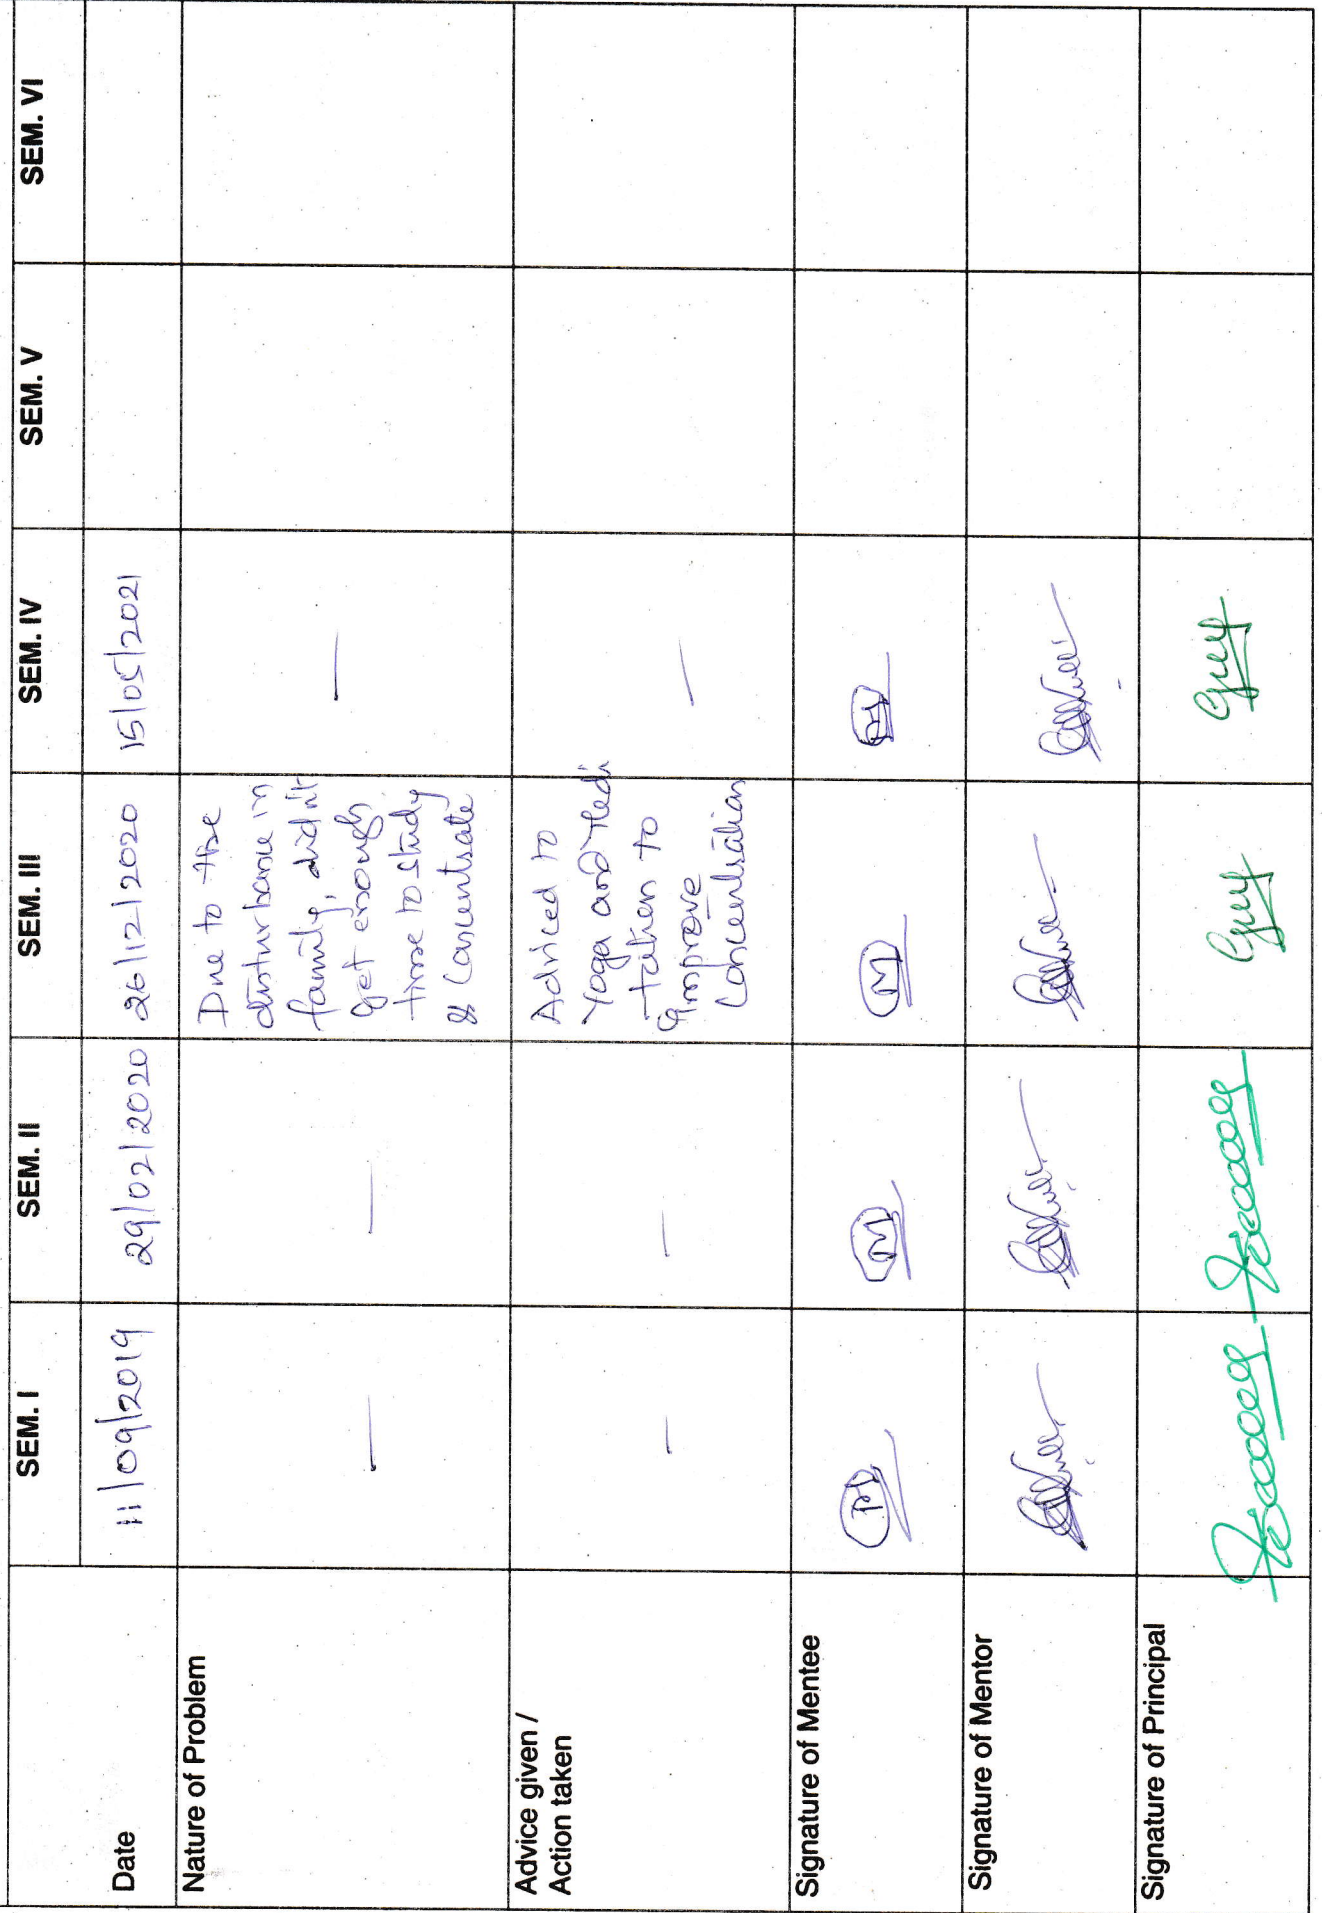 SEM. I SEM. II SEM. III SEM. IV SEM. V SEM. VI
Date 11/09/2019 29/02/2020 26/12/2020 15/05/2021
Nature of Problem — — —
Due to the
disturbance in
family, didn't
get enough
time to study
& Concentrate
Advice given /
Action taken — — —
Adviced to
Yoga and Medi
tation to
Improve
Concentration
Signature of Mentee M M M M
Signature of Mentor
Signature of Principal